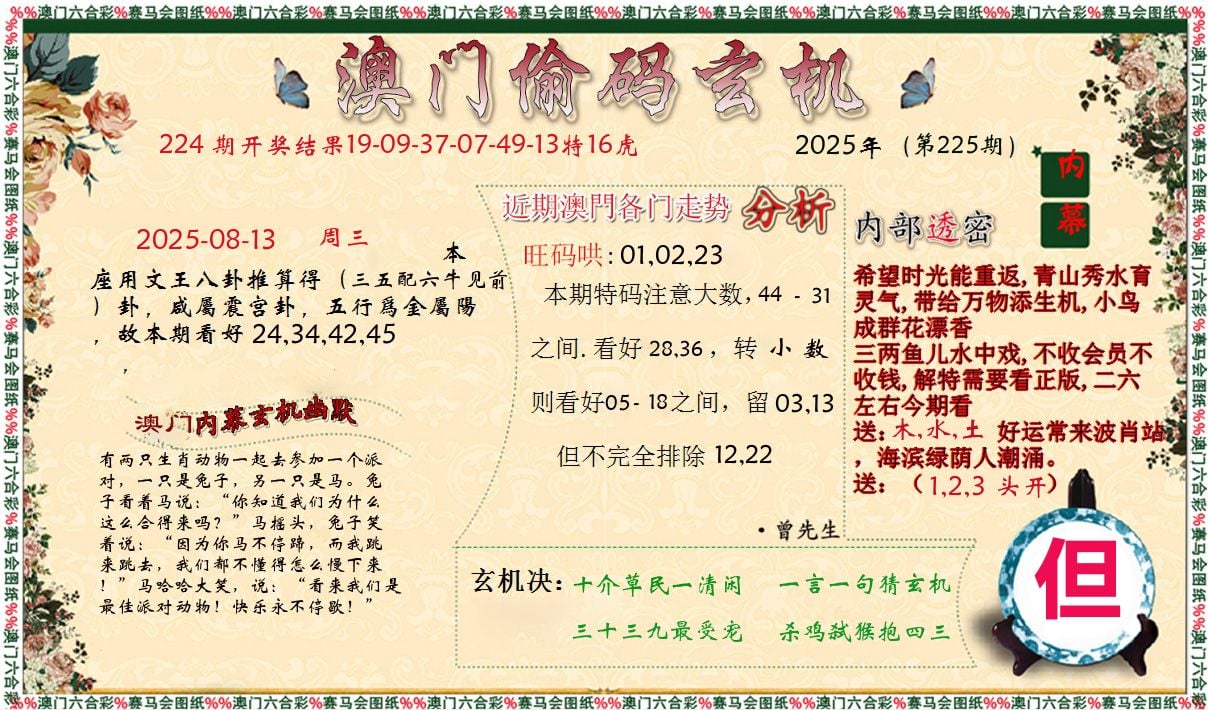 %%澳门六合彩%赛马会图纸%%澳门六合彩%赛马会图纸%%澳门六合彩%赛马会图纸%%澳门六合彩%赛马会图纸%%澳门六合彩%赛马会图纸%%澳门六合彩%赛马会图纸%%
澳门偷码玄机
224 期开奖结果19-09-37-07-49-13特16虎
2025年（第225期）
内幕
2025-08-13 周三
本
座用文王八卦推算得（三五配六牛见前
）卦，咸屬震宫卦，五行爲金屬陽
，故本期看好 24,34,42,45
，
澳门内幕玄机幽默
有两只生肖动物一起去参加一个派
对，一只是兔子，另一只是马。兔
子看着马说：“你知道我们为什么
这么合得来吗？”马摇头，兔子笑
着说：“因为你马不停蹄，而我跳
来跳去，我们都不懂得怎么慢下来
！”马哈哈大笑，说：“看来我们是
最佳派对动物！快乐永不停歇！”
近期澳門各门走势 分析
旺码哄: 01,02,23
本期特码注意大数, 44 - 31
之间. 看好 28,36 ，转 小 数
则看好05- 18之间，留 03,13
但不完全排除 12,22
·曾先生
内部透密
希望时光能重返, 青山秀水育
灵气, 带给万物添生机, 小鸟
成群花漂香
三两鱼儿水中戏, 不收会员不
收钱, 解特需要看正版, 二六
左右今期看
送: 木,水,土 好运常来波肖站
，海滨绿荫人潮涌。
送: （1,2,3 头开）
玄机决: 十介草民一清闲 一言一句猜玄机
三十三九最受宠 杀鸡弑猴抱四三
但
%%澳门六合彩%赛马会图纸%%澳门六合彩%赛马会图纸%%澳门六合彩%赛马会图纸%%澳门六合彩%赛马会图纸%%澳门六合彩%赛马会图纸%%澳门六合彩%赛马会图纸%%